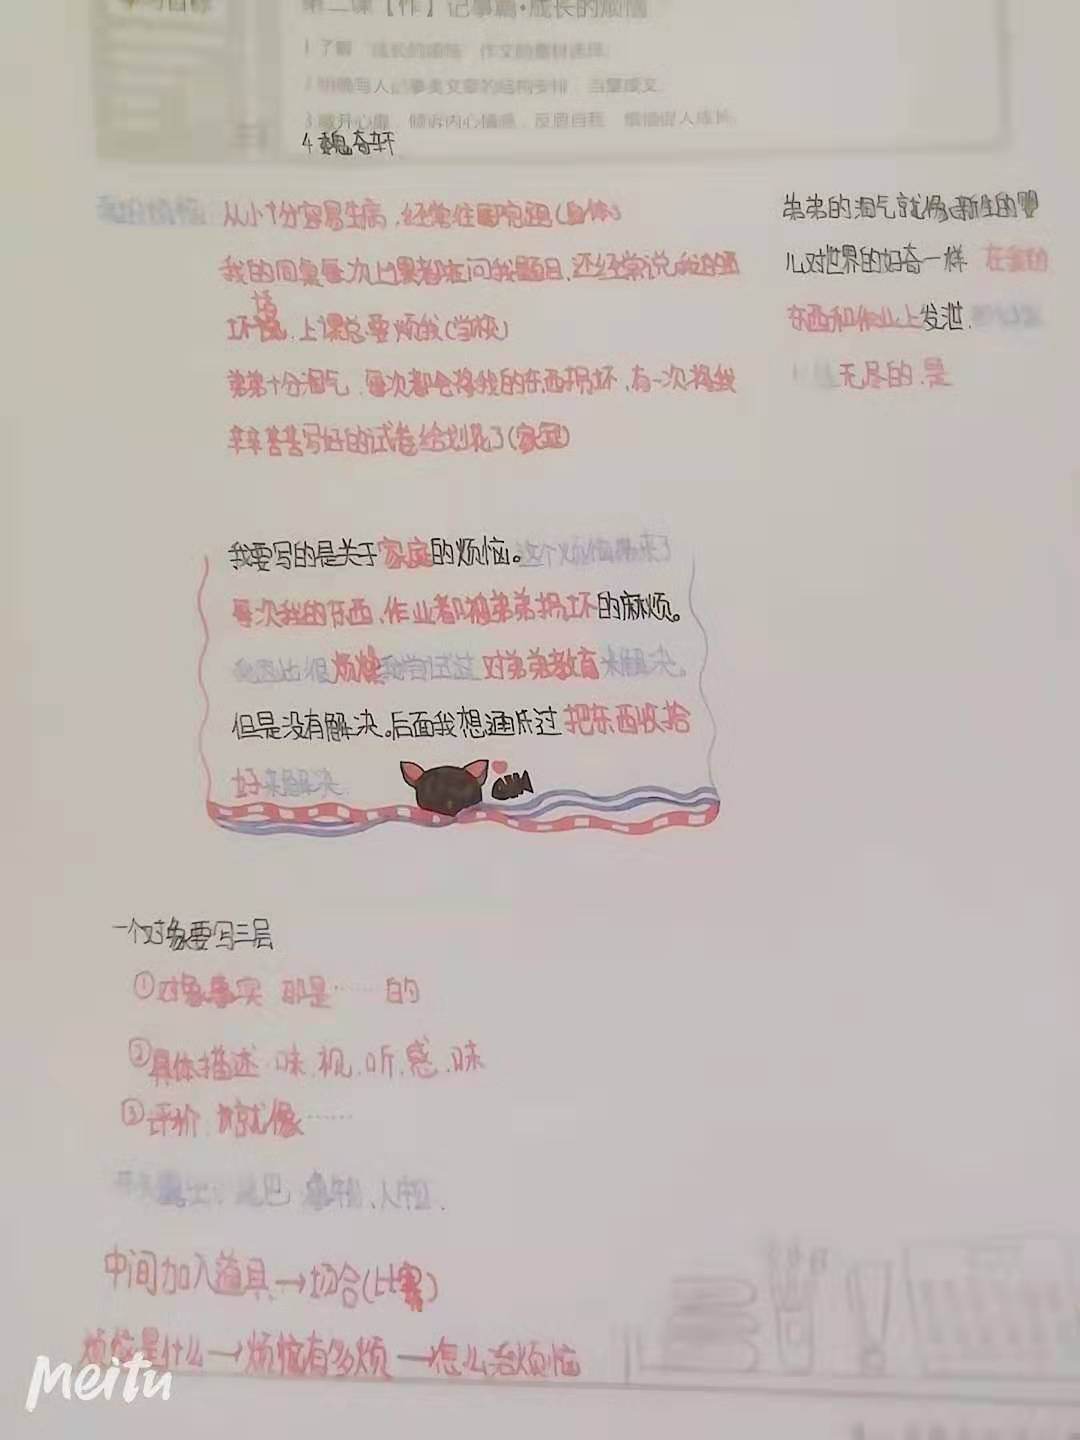 学习目标
第二课【作】记事篇·成长的烦恼
1.了解“成长的烦恼”作文的素材选择
2.明确写人记事类文章的结构安排，当堂成文
3.敞开心扉，倾诉内心情感，反思自我
4 魏奇轩
我的烦恼
从小十分容易生病，经常往医院跑(身体)
我的同桌每次上课都在问我题目，还经常说我的
坏话，上课总要烦我(学校)
弟弟十分淘气，每次都会将我的东西拐坏，有一次将我
辛辛苦苦写好的试卷给划花了(家庭)
弟弟的淘气就像新生的婴
儿对世界的好奇一样 在我的
东西和作业上发泄.
无尽的.是
我要写的是关于家庭的烦恼。这个烦恼带来了
每次我的东西、作业都被弟弟拐坏的麻烦。
我因此很烦燥我尝试过对弟弟教育来解决。
但是没有解决。后面我想通斥过把东西收拾
好来解决
一个对象要写三层
①对象事实 那是……的
②具体描述 味.视.听.感.味
③评价 就像……
中间加入道具→场合(比赛)
烦恼是什么→烦恼有多烦→怎么活烦恼
Meitu